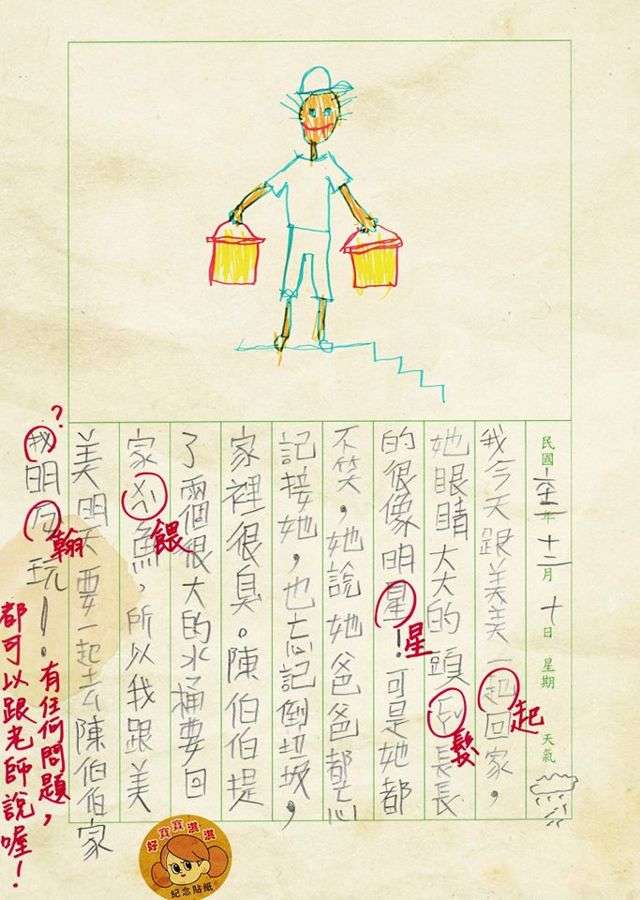 民國 年 十二 月 十 日 星期 天氣
我今天跟美美一起回家，
起
她眼睛大大的頭長長
髮
的很像明星！可是她都
星
不笑，她說她爸爸都忘
記接她，也忘記倒垃圾，
家裡很臭。陳伯伯提
了兩個很大的水桶要回
家魚，所以我跟美
餵
美明天要一起去陳伯伯家
明玩！
?
翰
有任何問題，
都可以跟老師說喔！
好寶寶淇淇
紀念貼紙